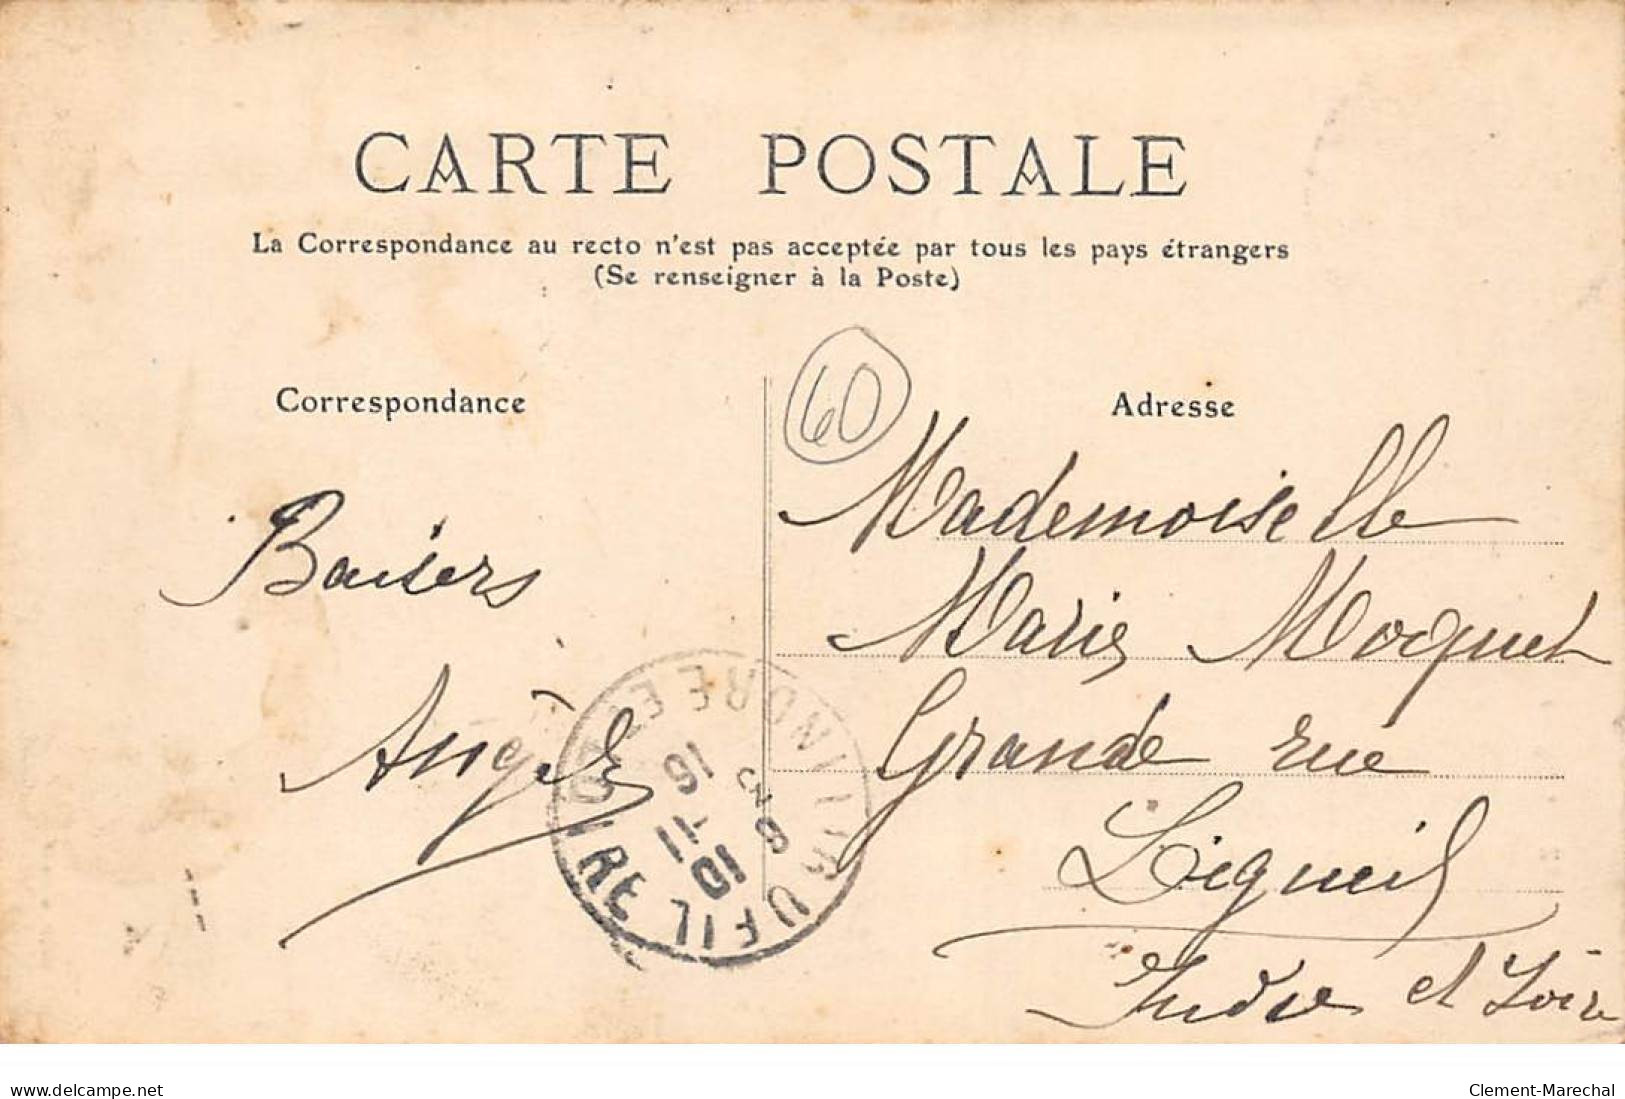 CARTE POSTALE
La Correspondance au recto n'est pas acceptée par tous les pays étrangers
(Se renseigner à la Poste)
Correspondance
60
Adresse
Mademoiselle
Baisers
Marie Mocquet
Angèle
Grande rue
Ligueil
Indre et Loire
INDRE ET LOIRE
16
10 - 11
delcampe.net
Clement-Marechal